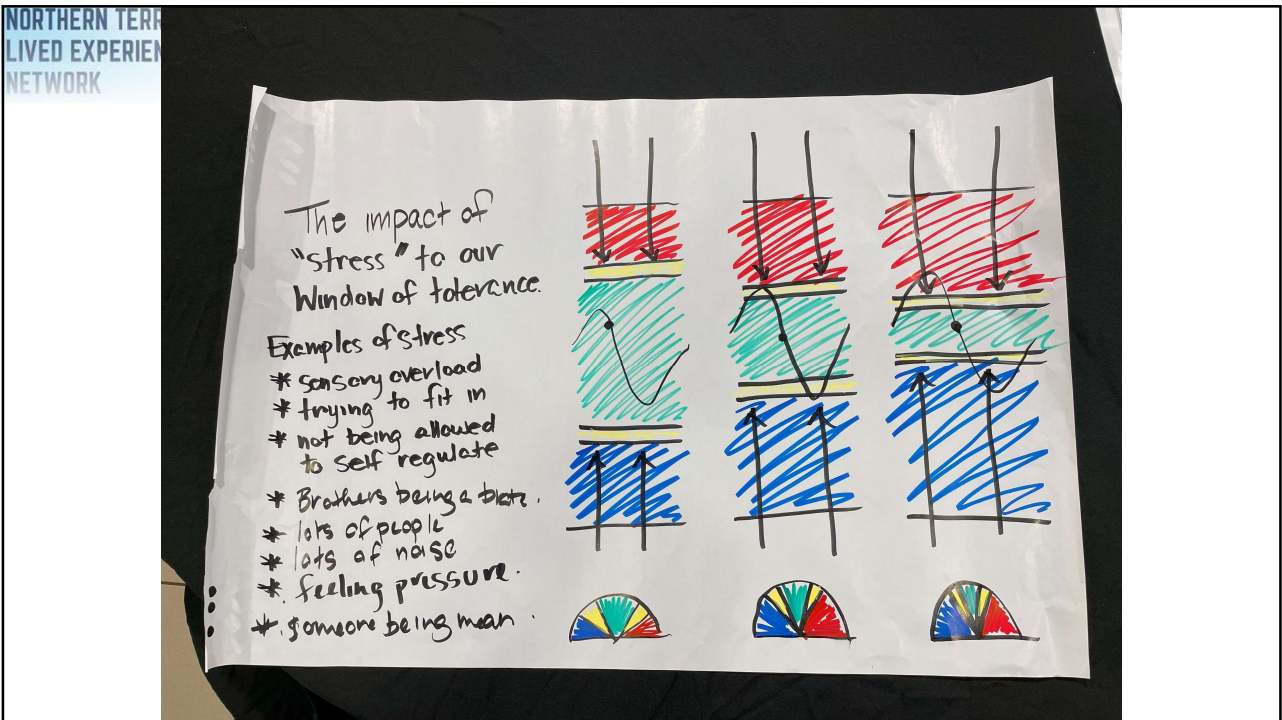 NORTHERN TERR
LIVED EXPERIEN
NETWORK
The impact of
"stress" to our
Window of tolerance.
Examples of stress
* sensory overload
* trying to fit in
* not being allowed
to self regulate
* Brothers being a
* lots of people
* lots of noise
* feeling pressure.
* someone being mean.